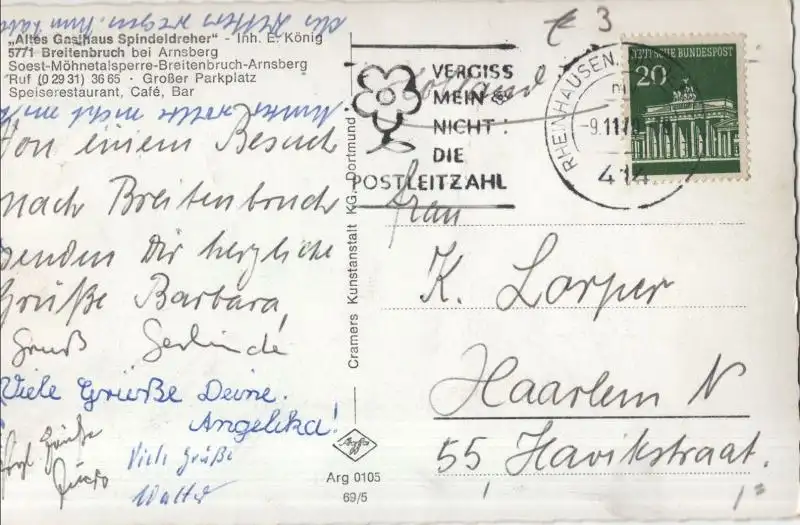 „Altes Gasthaus Spindeldreher" - Inh. E. König
5771 Breitenbruch bei Arnsberg
Soest-Möhnetalsperre-Breitenbruch-Arnsberg
Ruf (0 29 31) 36 65 · Großer Parkplatz
Speiserestaurant, Café, Bar
Von einem Besuch
nach Breitenbruch
senden Dir herzliche
Grüße Barbara,
Gruß Gerlinde
Viele Grüße Deine
Angelika!
Viele Grüße
Walter
Cramers Kunstanstalt KG., Dortmund
Arg 0105
69/5
€ 3
Holland
VERGISS
MEIN
NICHT:
DIE
POSTLEITZAHL
RHEINHAUSEN
-9.11.70
414
DEUTSCHE BUNDESPOST
20
Frau
K. Lorper
Haarlem N
55, Havikstraat.